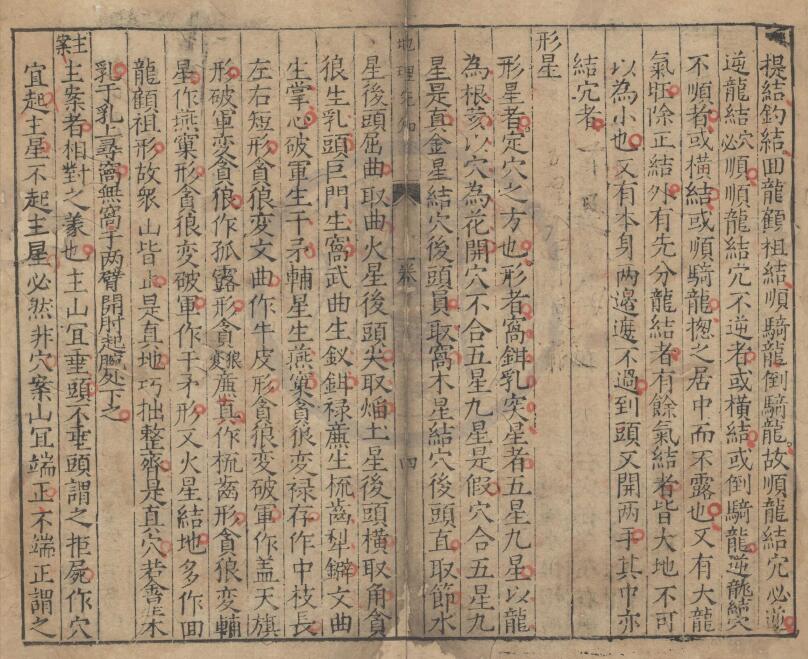 提結鈎結囬龍顧祖結順騎龍倒騎龍故順龍結穴必逆
逆龍結必順順龍結穴不逆者或橫結或倒騎龍逆龍結穴
不順者或橫結或順騎龍揔之居中而不露也又有大龍
氣旺除正結外有先分龍結者有餘氣結者皆大地不可
以為小也又有本身兩邊遮不過到頭又開两手其中亦
結穴者
形星
形星者定穴之方也形者窩鉗乳突星者五星九星以龍
為根亥以穴為花開穴不合五星九星是假穴合五星九
星是真金星結穴後頭員取窩木星結穴後頭直取節水
地理
卷
四
星後頭屈曲取曲火星後頭尖取焰土星後頭橫取角貪
狼生乳頭巨門生窩武曲生釵鉗禄廉生梳齒犁鐴文曲
生掌心破軍生干矛輔星生燕窠貪狼变禄存作中枝長
左右短形貪狼变文曲作牛皮形貪狼变破軍作盖天旗
形破軍变貪狼作孤露形貪狼变廉真作梳齒形貪狼变輔
星作燕窠形貪狼变破軍作干矛形又火星結地多作囬
龍顧祖形故衆山皆止是真地巧拙整齊是真穴若
乳于乳上尋窩無窩于两臂開肘起腦处下之
主案
主案者相對之義也主山冝垂頭不垂頭謂之拒屍作穴
冝起主星不起主星必然非穴案山冝端正不端正謂之